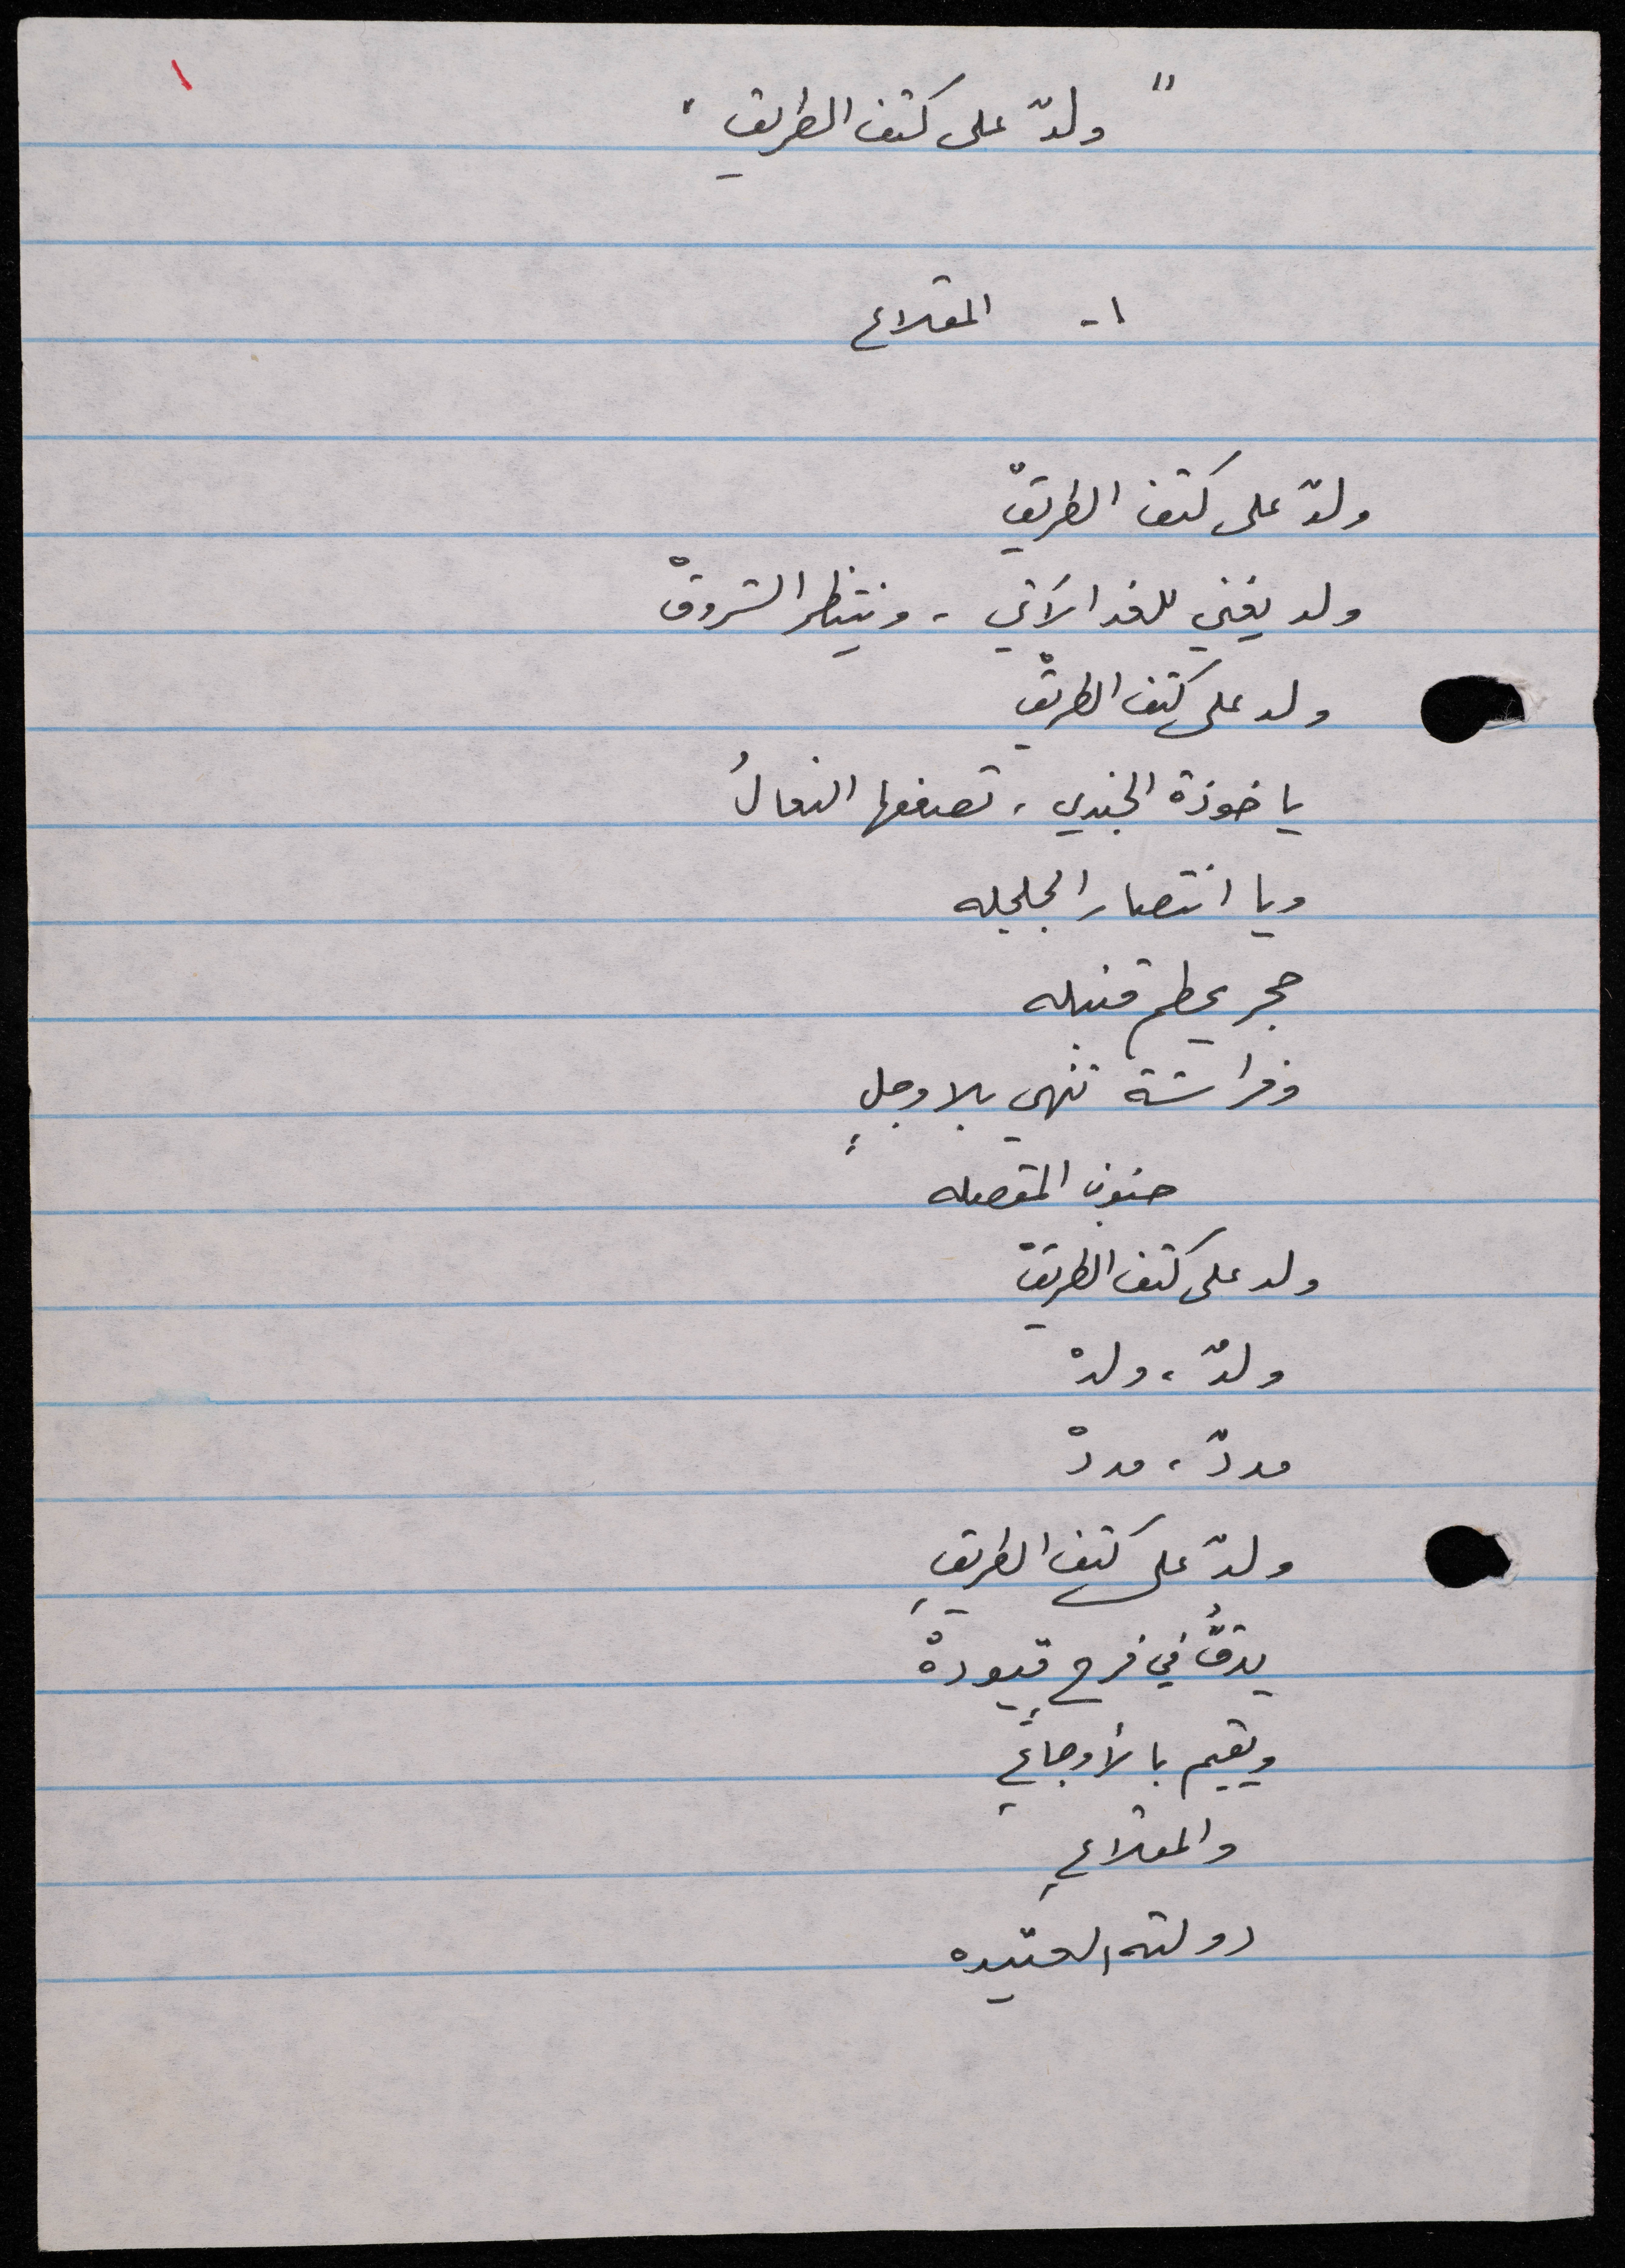 ١
" ولدٌ على كتف الطريق "
١- المقلاع
ولدٌ على كتف الطريقْ
ولد يغني للغد الآتي - وينتظر الشروقْ
ولد على كتف الطريقْ
يا خوذة الجندي ، تصفعها النعالُ
ويا انتصار الجلجله
حجر يحطم قنبله
وفراشة تنهي بلا وجلٍ
جنون المقصله
ولد على كتف الطريقْ
ولدٌ ، ولدْ
مددٌ ، مددْ
ولدٌ على كتف الطريقِ
يدقُّ في فرحٍ قيودهْ
ويقيم بالأوجاعِ
والمقلاعِ
دولته العتيده